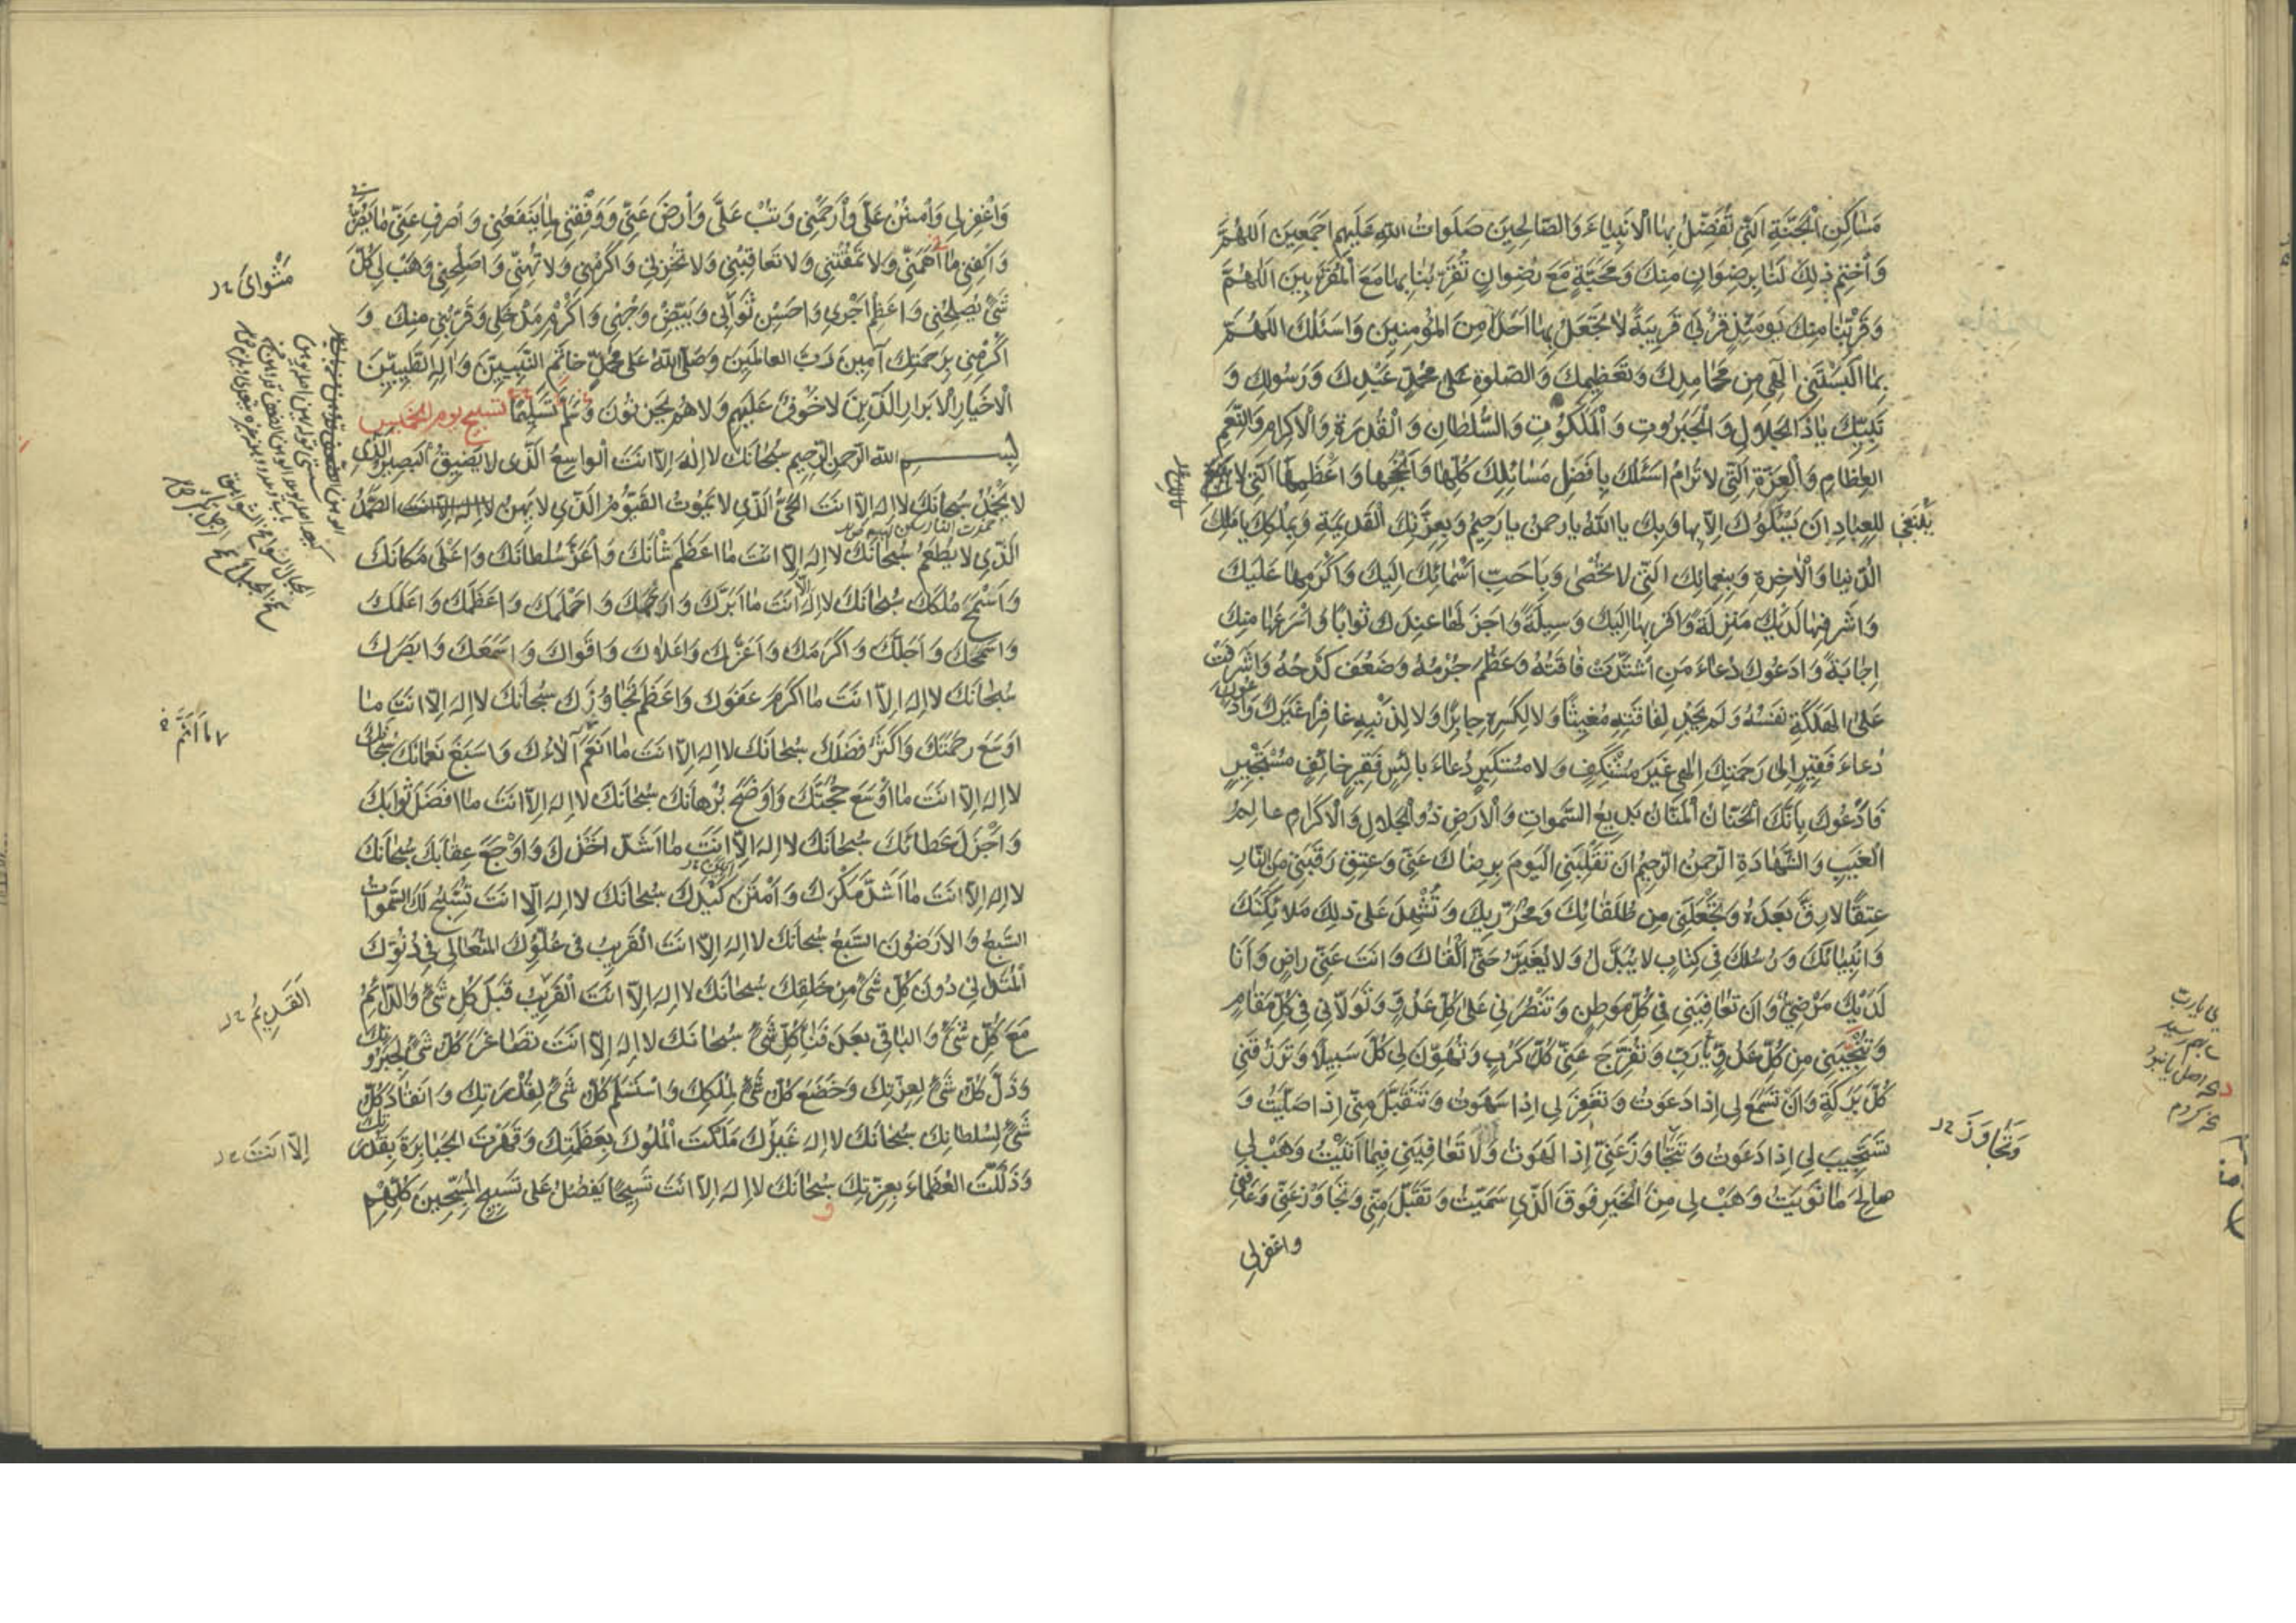 مَسٰاكِنِ الْجَنَّةِ الَّتِي تُفَضِّلُ بِهَا الْاَنْبِيٰاءَ وَالصّٰالِحِينَ صَلَوٰاتُ اللهِ عَلَيْهِم اَجْمَعِينَ اَللّٰهُمَّ
وَاخْتِم ذٰلِكَ لَنٰا بِرِضْوٰانٍ مِنكَ وَمَحَبَّةٍ مَعَ رِضْوٰانٍ تُقَرِّبُنٰا بِهٰا مَعَ الْمُقَرَّبِينَ اَللّٰهُمَّ
وَقَرِّبْنٰا مِنكَ يَومَئِذٍ قُرْبٰى قَرِيبَةً لاٰ تَجْعَلُ بِهٰا اَحَدًا مِنَ الْمُؤمِنِينَ وَاَسئَلُكَ اللّٰهُمَّ
بِمٰا اَلْبَستَنِي اِلٰهِي مِن مَحٰامِدِكَ وَتَعْظِيمِكَ وَالصَّلٰوةِ عَلٰى مُحَمَّدٍ عَبْدِكَ وَرَسُولِكَ وَ
نَبِيِّكَ يٰاذَا الْجَلاٰلِ وَالْجَبَرُوتِ وَالْمَلَكُوتِ وَالسُّلطٰانِ وَالْقُدرَةِ وَالْاِكرٰامِ وَالنِّعَمِ
العِظٰامِ وَالْعِزَّةِ الَّتِي لاٰ تُرٰامُ اَسئَلُكَ بِاَفضَلِ مَسٰائِلِكَ كُلِّهٰا وَاَنْجَحِهٰا وَاَعْظَمِهٰا الَّتِي لاٰ
يَنْبَغِي لِلعِبٰادِ اَن يَسئَلُوكَ اِلاّٰ بِهٰا وَبِكَ يٰا اَللهُ يٰا رَحمٰنُ يٰا رَحِيمُ وَبِعِزَّتِكَ الْقَدِيمَةِ وَبِمُلكِكَ يٰا مَلِكَ
الدُّنيٰا وَالْاٰخِرَةِ وَبِنِعمٰائِكَ الَّتِي لاٰ تُحصٰى وَبِاَحَبِّ اَسْمٰائِكَ اِلَيكَ وَاَكْرَمِهٰا عَلَيكَ
وَاَشْرَفِهٰا لَدَيْكَ مَنْزِلَةً وَاَقرَبِهٰا اِلَيكَ وَسِيلَةً وَاَجْزَلِهٰا عِندَكَ ثَوٰابًا وَاَسْرَعِهٰا مِنكَ
اِجٰابَةً وَاَدعُوكَ دُعٰاءَ مَنِ اشتَدَّت فٰاقَتُهُ وَعَظُمَ جُرْمُهُ وَضَعُفَ كَدْحُهُ وَاَشرَفَت
عَلَى الْهَلَكَةِ نَفْسُهُ وَلَم يَجِدْ لِفٰاقَتِهِ مُغِيثًا وَلاٰ لِكَسرِهِ جٰابِرًا وَلاٰ لِذَنْبِهِ غٰافِرًا غَيرَكَ وَاَدعُوكَ
دُعٰاءَ فَقِيرٍ اِلٰى رَحمَتِكَ اِلٰهِي غَيرَ مُسْتَنكِفٍ وَلاٰ مُستَكبِرٍ دُعٰاءَ بٰائِسٍ فَقِيرٍ خٰائِفٍ مُسْتَجِيرٍ
فَاَدْعُوكَ بِاَنَّكَ الْحَنّٰانُ الْمَنّٰانُ بَدِيعُ السَّمٰوٰاتِ وَالْاَرضِ ذُو الْجَلاٰلِ وَالْاِكرٰامِ عٰالِمُ
الْغَيبِ وَالشَّهٰادَةِ الرَّحمٰنُ الرَّحِيمُ اَن تَقْلِبَنِي الْيَومَ بِرِضٰاكَ عَنِّي وَعِتقِ رَقَبَتِي مِنَ النّٰارِ
عِتقًا لاٰ رِقَّ بَعدَهُ وَتَجْعَلَنِي مِن طُلَقٰائِكَ وَمُحَرَّرِيكَ وَتُشْهِدَ عَلٰى ذٰلِكَ مَلاٰئِكَتَكَ
وَاَنْبِيٰائَكَ وَرُسُلَكَ فِي كِتٰابٍ لاٰ يُبَدَّلُ وَلاٰ يُغَيَّرُ حَتّٰى اَلْقٰاكَ وَاَنتَ عَنِّي رٰاضٍ وَاَنَا
لَدَيْكَ مَرْضِيٌّ وَاَن تُعٰافِيَنِي فِي كُلِّ مَوطِنٍ وَتَنْصُرَنِي عَلٰى كُلِّ عَدُوٍّ وَتَوَلاّٰنِي فِي كُلِّ مَقٰامٍ
وَتُنْجِيَنِي مِن كُلِّ عَدُوٍّ يٰا رَبِّ وَتُفَرِّجَ عَنِّي كُلَّ كَربٍ وَتُهَوِّنَ لِي كُلَّ سَبِيلٍ وَتَرزُقَنِي
كُلَّ بَرَكَةٍ وَاَنْ تَسْمَعَ لِي اِذٰا دَعَوتُ وَتَغفِرَ لِي اِذٰا سَهَوتُ وَتَتَقَبَّلَ مِنِّي اِذٰا صَلَّيتُ وَ
تَستَجِيبَ لِي اِذٰا دَعَوتُ وَتَتَجٰاوَزَ عَنِّي اِذٰا لَهَوتُ وَلاٰ تُعٰاقِبَنِي فِيمٰا اَتَيْتُ وَهَب لِي
صٰالِحَ مٰا نَوَيتُ وَهَبْ لِي مِنَ الْخَيرِ فَوقَ الَّذِي سَمَّيتُ وَتَقَبَّل مِنِّي وَتَجٰاوَزْ عَنِّي وَعٰافِنِي
واغفر لي
وَتَجٰاوَزَ
وَاغْفِر لِي وَامنُنْ عَلَيَّ وَارْحَمْنِي وَتُبْ عَلَيَّ وَارْضَ عَنِّي وَوَفِّقْنِي لِمٰا يَنْفَعُنِي وَاصرِف عَنِّي مٰا يَضُرُّنِي
وَاكفِنِي مٰا اَهَمَّنِي وَلاٰ تَمقُتْنِي وَلاٰ تُعٰاقِبْنِي وَلاٰ تُخْزِنِي وَاَكْرِمْنِي وَلاٰ تُهِنِّي وَاَصْلِحْنِي وَهَبْ لِي كُلَّ
شَيْءٍ يُصلِحُنِي وَاَعظِمْ اَجْرِي وَاَحسِن ثَوٰابِي وَبَيِّضْ وَجْهِي وَاَكْرِمْ مَدْخَلِي وَقَرِّبْنِي مِنكَ وَ
اَكْرِمْنِي بِرَحمَتِكَ آمِينَ رَبَّ العٰالَمِينَ وَصَلَّى اللهُ عَلٰى مُحَمَّدٍ خٰاتَمِ النَّبِيِّينَ وَاٰلِهِ الطَّيِّبِينَ
الْاَخيٰارِ الْاَبرٰارِ الَّذِينَ لاٰ خَوْفٌ عَلَيهِم وَلاٰ هُم يَحزَنُونَ وَسَلَّمَ تَسلِيمًا تسبيح يوم الخميس
بِسمِ اللهِ الرَّحمٰنِ الرَّحِيمِ سُبحٰانَكَ لاٰ اِلٰهَ اِلاّٰ اَنتَ الْوٰاسِعُ الَّذِي لاٰ يَضِيقُ الْبَصِيرُ الَّذِي
لاٰ يَبْخَلُ سُبحٰانَكَ لاٰ اِلٰهَ اِلاّٰ اَنتَ الْحَيُّ الَّذِي لاٰ يَمُوتُ القَيُّومُ الَّذِي لاٰ يَهِنُ لاٰ اِلٰهَ اِلاّٰ اَنتَ الصَّمَدُ
الَّذِي لاٰ يُطعَمُ سُبحٰانَكَ لاٰ اِلٰهَ اِلاّٰ اَنتَ مٰا اَعظَمَ شَأنَكَ وَاَعَزَّ سُلطٰانَكَ وَاَعْلٰى مَكٰانَكَ
وَاَشْمَخَ مُلكَكَ سُبحٰانَكَ لاٰ اِلٰهَ اِلاّٰ اَنتَ مٰا اَبَرَّكَ وَاَرْحَمَكَ وَاَحْلَمَكَ وَاَعظَمَكَ وَاَعلَمَكَ
وَاَسْمَحَكَ وَاَجَلَّكَ وَاَكْرَمَكَ وَاَعَزَّكَ وَاَعلاٰكَ وَاَقوٰاكَ وَاَسْمَعَكَ وَاَبصَرَكَ
سُبحٰانَكَ لاٰ اِلٰهَ اِلاّٰ اَنتَ مٰا اَكْرَمَ عَفوَكَ وَاَعظَمَ تَجٰاوُزَكَ سُبحٰانَكَ لاٰ اِلٰهَ اِلاّٰ اَنتَ مٰا
اَوسَعَ رَحمَتَكَ وَاَكْثَرَ فَضلَكَ سُبحٰانَكَ لاٰ اِلٰهَ اِلاّٰ اَنتَ مٰا اَنعَمَ آلاٰءَكَ وَاَسبَغَ نَعمٰائَكَ سُبحٰانَكَ
لاٰ اِلٰهَ اِلاّٰ اَنتَ مٰا اَوْسَعَ حُجَّتَكَ وَاَوضَحَ بُرْهٰانَكَ سُبحٰانَكَ لاٰ اِلٰهَ اِلاّٰ اَنتَ مٰا اَفضَلَ ثَوٰابَكَ
وَاَجْزَلَ عَطٰائَكَ سُبحٰانَكَ لاٰ اِلٰهَ اِلاّٰ اَنتَ مٰا اَشَدَّ اَخذَكَ وَاَوْجَعَ عِقٰابَكَ سُبحٰانَكَ
لاٰ اِلٰهَ اِلاّٰ اَنتَ مٰا اَشَدَّ مَكْرَكَ وَاَمْتَنَ كَيْدَكَ سُبحٰانَكَ لاٰ اِلٰهَ اِلاّٰ اَنتَ تُسَبِّحُ لَكَ السَّمٰوٰاتُ
السَّبعُ وَالْاَرَضُونَ السَّبعُ سُبحٰانَكَ لاٰ اِلٰهَ اِلاّٰ اَنتَ الْقَرِيبُ فِي عُلُوِّكَ الْمُتَعٰالِي فِي دُنُوِّكَ
الْمُتَدٰانِي دُونَ كُلِّ شَيْءٍ مِن خَلقِكَ سُبحٰانَكَ لاٰ اِلٰهَ اِلاّٰ اَنتَ الْقَرِيبُ قَبلَ كُلِّ شَيْءٍ وَالدّٰائِمُ
مَعَ كُلِّ شَيْءٍ وَالبٰاقِي بَعدَ فَنٰاءِ كُلِّ شَيْءٍ سُبحٰانَكَ لاٰ اِلٰهَ اِلاّٰ اَنتَ تَصٰاغَرَ كُلُّ شَيْءٍ لِجَبَرُوتِكَ
وَذَلَّ كُلُّ شَيْءٍ لِعِزَّتِكَ وَخَضَعَ كُلُّ شَيْءٍ لِمُلكِكَ وَاستَسلَمَ كُلُّ شَيْءٍ لِقُدْرَتِكَ وَانقٰادَ كُلُّ
شَيْءٍ لِسُلطٰانِكَ سُبحٰانَكَ لاٰ اِلٰهَ غَيرُكَ مَلَكْتَ الْمُلُوكَ بِعَظَمَتِكَ وَقَهَرْتَ الْجَبٰابِرَةَ بِقُدْرَتِكَ
وَذَلَّلتَ الْعُظَمٰاءَ بِعِزَّتِكَ سُبحٰانَكَ لاٰ اِلٰهَ اِلاّٰ اَنتَ تَسبِيحًا يَفضُلُ عَلٰى تَسبِيحِ الْمُسَبِّحِينَ كُلِّهِم
مَثْوٰايَ
القَدِيمُ
اِلاّٰ اَنتَ